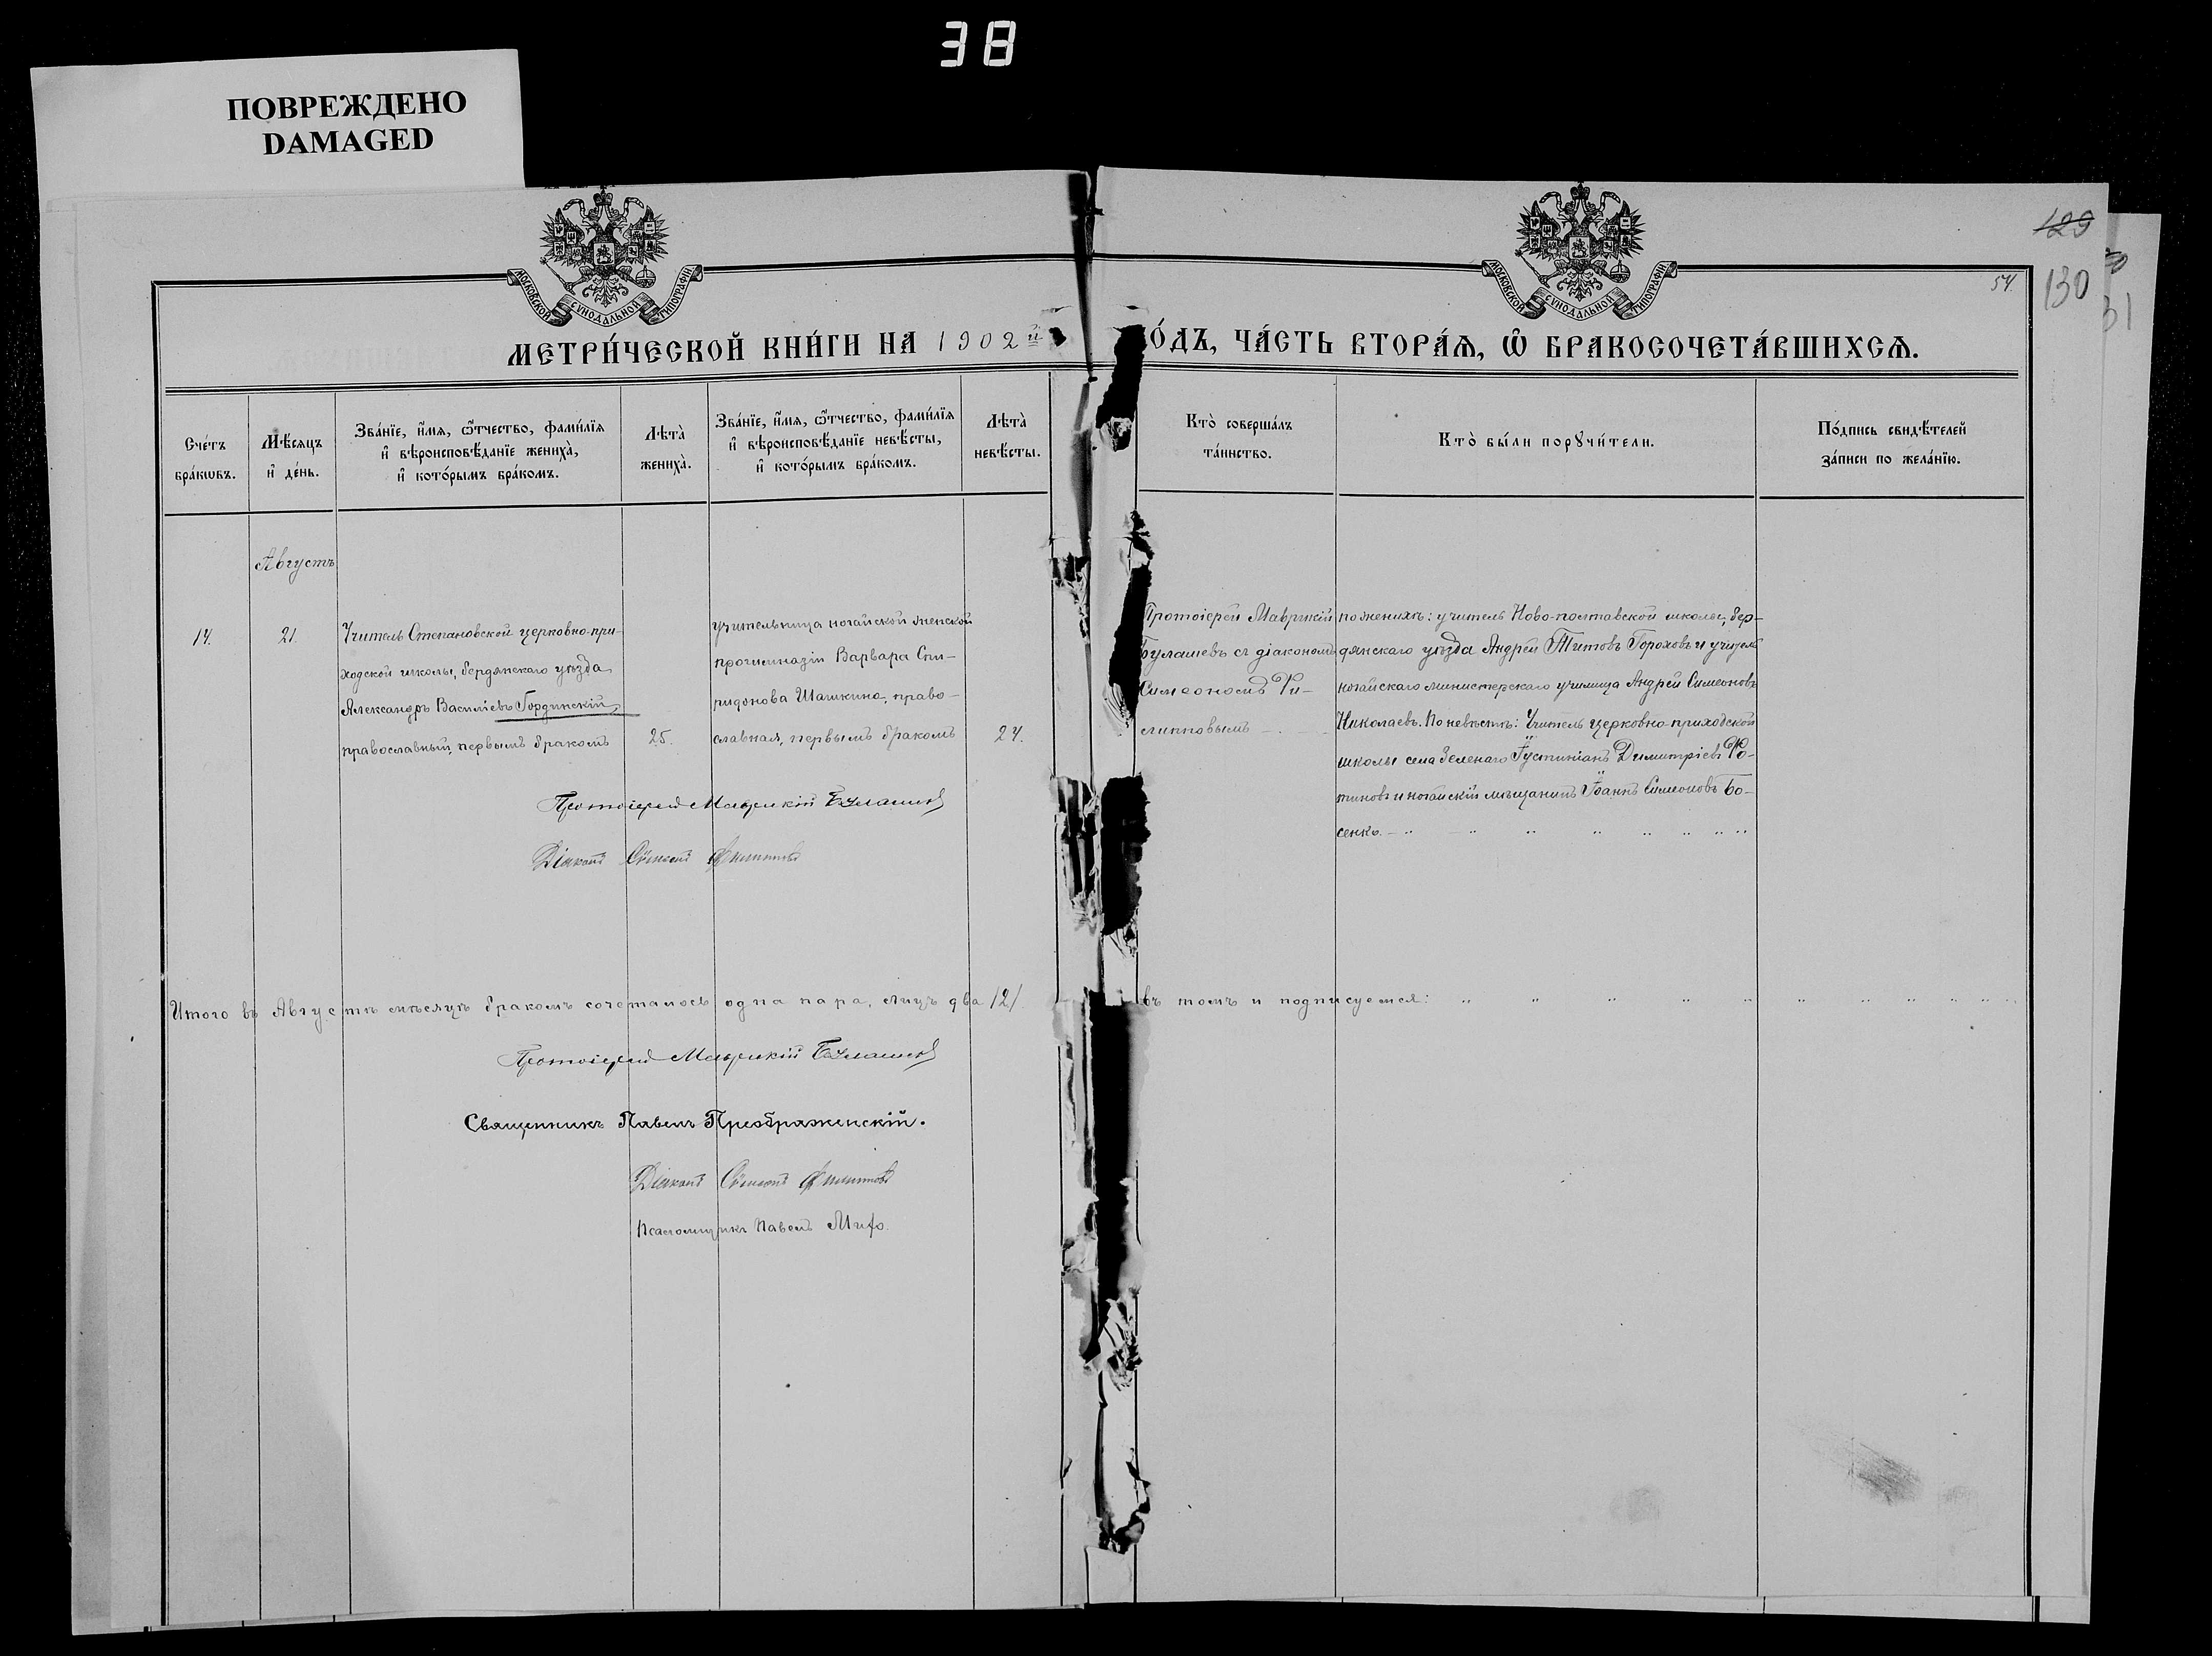 38
ПОВРЕЖДЕНО
DAMAGED
МОСКОВСКОЙ СѴНОДАЛЬНОЙ ТИПОГРАФІИ
МОСКОВСКОЙ СѴНОДАЛЬНОЙ ТИПОГРАФІИ
129
130
54
31
МЕТРИ́ЧЕСКОЙ КНИ́ГИ НА 1902й
О́ДЪ, ЧА́СТЬ ВТОРА́Ѧ, Ѡ҆ БРАКОСОЧЕТА́ВШИХСѦ.
Сче́тъ
бра́кѡвъ.
Мѣ́сяцъ
и҆ де́нь.
Зва́нїе, и҆́мя, ѻ҆́тчество, фами́лїя
и҆ вѣроисповѣ́данїе жениха̀,
и҆ кото́рымъ бра́комъ.
Лѣта̀
жениха̀.
Зва́нїе, и҆́мя, ѻ҆́тчество, фами́лїя
и҆ вѣроисповѣ́данїе невѣ́сты,
и҆ кото́рымъ бра́комъ.
Лѣта̀
невѣ́сты.
Кто̀ соверша́лъ
та́инство.
Кто̀ бы́ли порꙋчи́тели.
По́дпись свидѣ́телей
за́писи по жела́нїю.
Августъ
14.
21.
Учитель Степановской церковно-при-
ходской школы, бердянскаго уѣзда
Александръ Василіевъ Гординскій,
православный, первымъ бракомъ
25.
учительница ногайской женской
прогимназіи Варвара Спи-
ридонова Шашкина, право-
славная, первымъ бракомъ
24.
Протоіерей Маврикій
Булашевъ съ діакономъ
Симеономъ Фи-
липповымъ
по женихѣ: учитель Ново-полтавской школы, бер-
дянскаго уѣзда Андрей Титовъ Гороховъ и учитель
ногайскаго министерскаго училища Андрей Симеоновъ
Николаевъ. По невѣстѣ: Учитель церковно-приходской
школы села Зеленаго Іустиніанъ Димитріевъ Фо-
тиновъ и ногайскій мѣщанинъ Іоаннъ Симеоновъ Бо-
сенко.
Протоіерей Маврикій Булашевъ
Діаконъ Симеонъ Филипповъ
Итого въ Августѣ мѣсяцѣ бракомъ сочеталось одна пара, лицъ два /2/
въ томъ и подписуемся:
Протоіерей Маврикій Булашевъ
Священникъ Павелъ Преображенскій.
Діаконъ Симеонъ Филипповъ
Псаломщикъ Павелъ